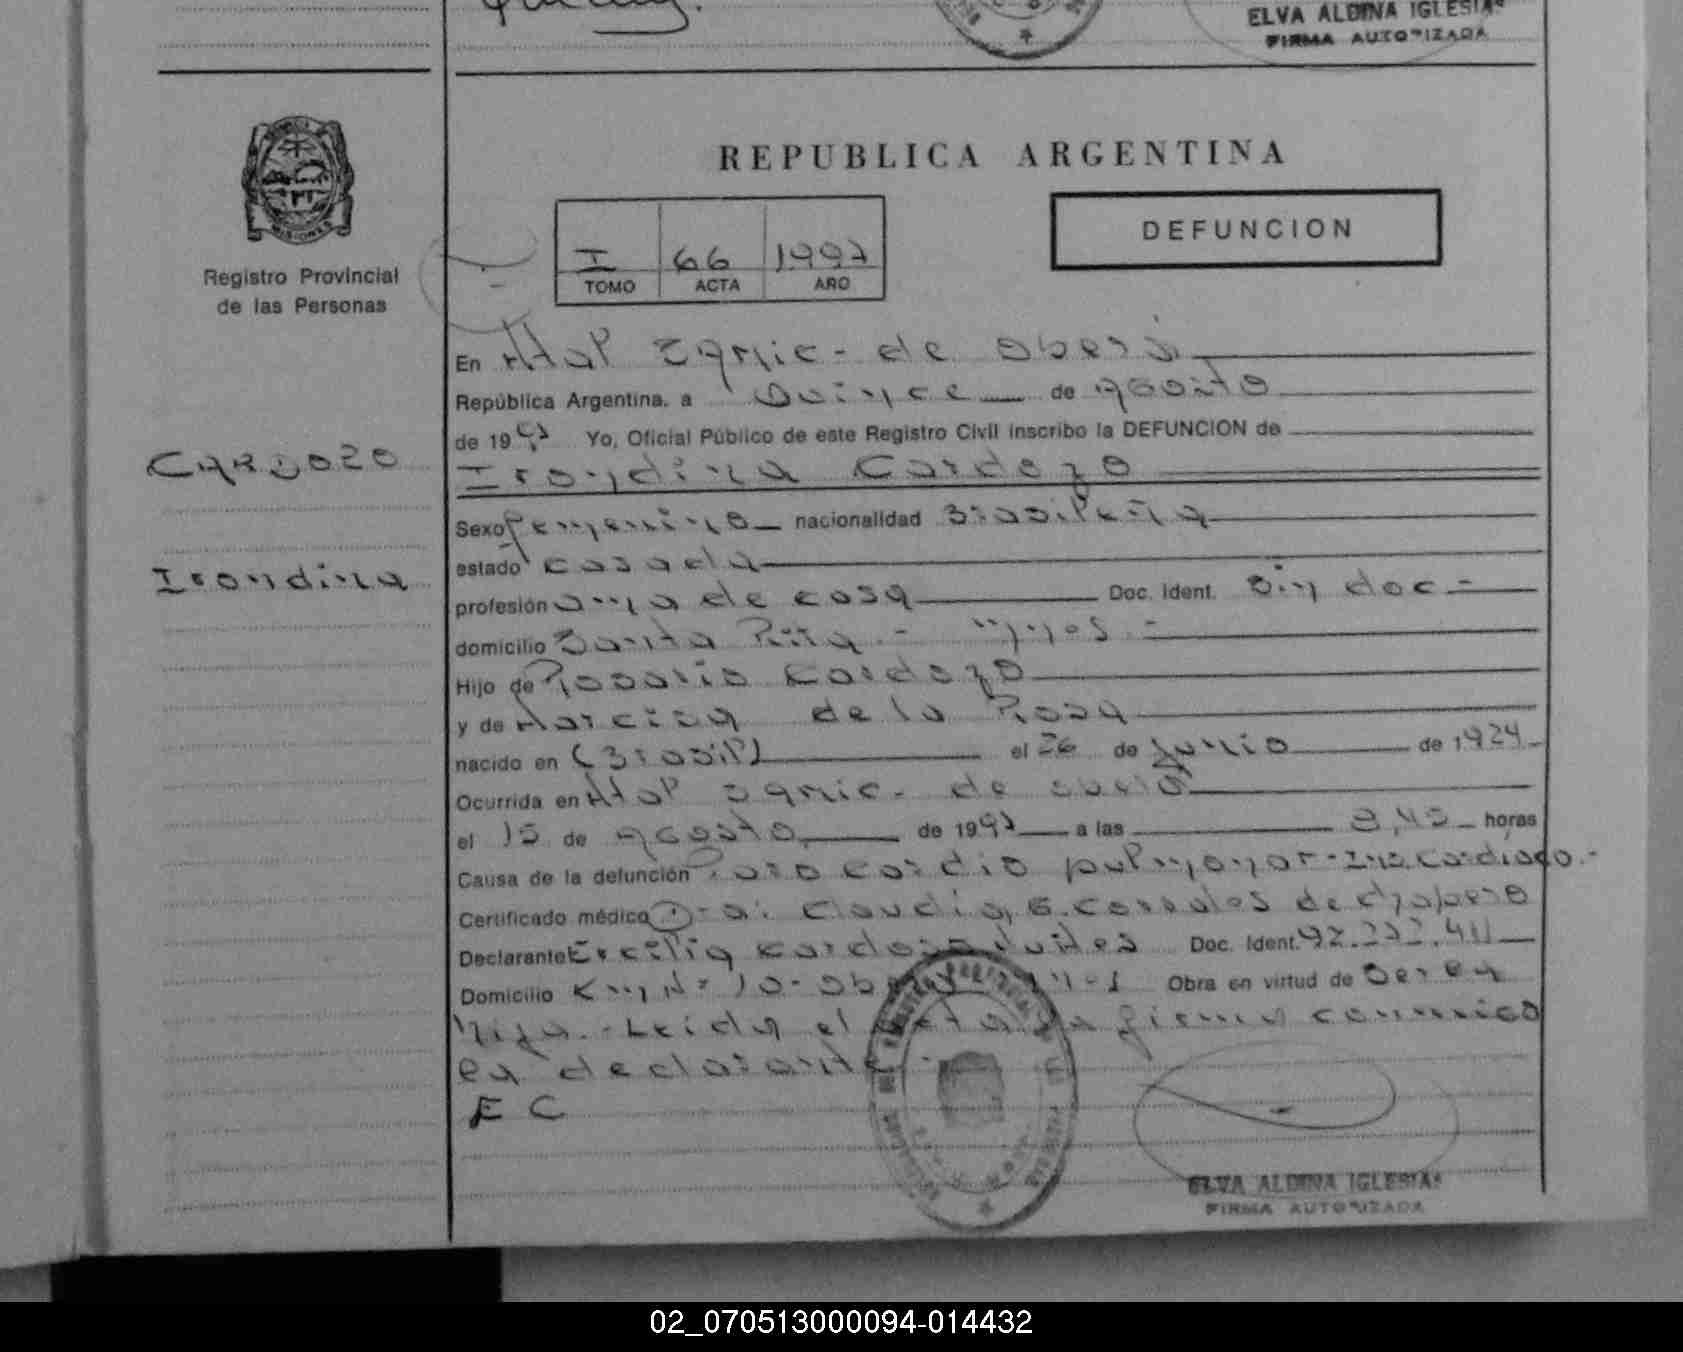 ELVA ALDINA IGLESIAS
FIRMA AUTORIZADA
MISIONES
Registro Provincial
de las Personas
CARDOZO
Irondina
REPUBLICA ARGENTINA
I 66 1997
TOMO ACTA AÑO
DEFUNCION
En Htal Zonic - de Oberá
República Argentina, a Quince de Agosto
de 1997 Yo, Oficial Público de este Registro Civil inscribo la DEFUNCION de
Irondina Cardozo
Sexo femenino nacionalidad Brasileña
estado casada
profesión ama de casa Doc. Ident. Sin doc -
domicilio Santa Rita - Mnes -
Hijo de Rosario Cardozo
y de Narcisa de la Rosa
nacido en (Brasil) el 26 de Junio de 1924
Ocurrida en Htal - de Oberá
el 15 de agosto de 1997 a las 8,45 horas
Causa de la defunción Paro cardio pulmonar - Ins. Cardiaco.-
Certificado médico Claudia de
Declarante Ercilia Cardozo Doc. Ident. 92.
Domicilio Km Nº 10 - Oberá Mnes Obra en virtud de Ser la
hija.- Leída el acta la firma conmigo
la declarante.-
E C
ELVA ALDINA IGLESIAS
FIRMA AUTORIZADA
02_070513000094-014432